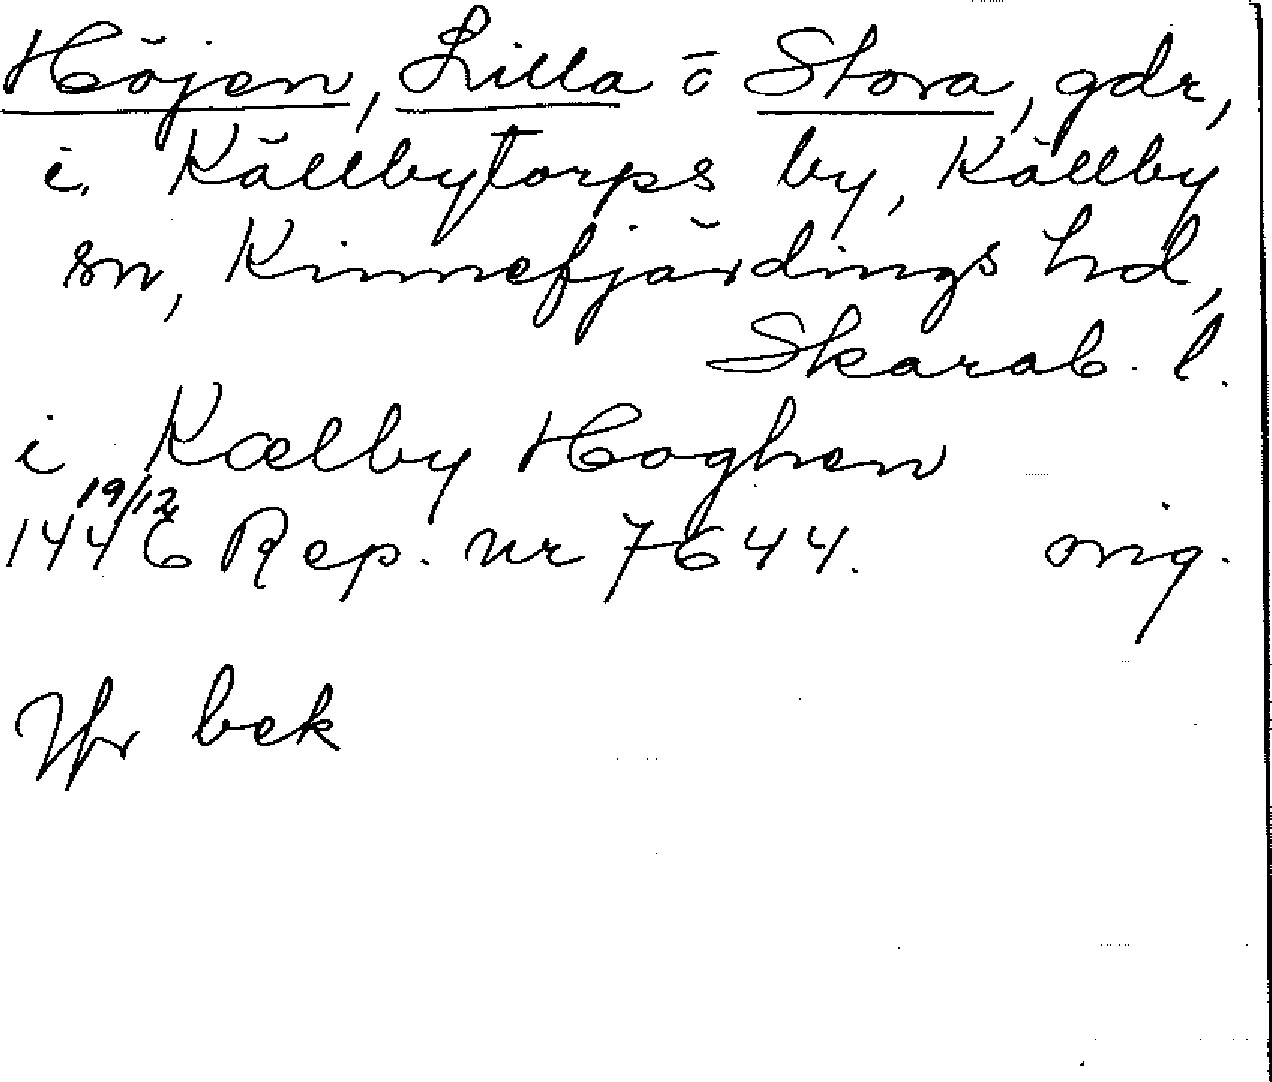 Höjen, Lilla o Stora, gdr,
i Källbytorps by, Källby
sn, Kinnefjärdings hd,
Skarab. l.
i Kælby Hoghen
19/12
1446 Rep. nr 7644. orig.
Jfr bek